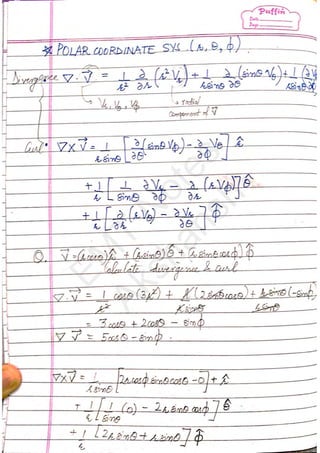 Puffin
Date
Page
* POLAR COORDINATE SYS (r, θ, ϕ).
Divergence ∇. V⃗ = 1/r² ∂/∂r (r² Vr) + 1/(r sinθ) ∂/∂θ (sinθ Vθ) + 1/(r sinθ) (∂Vϕ
→ Vr, Vθ, Vϕ → radial
component of V⃗
Curl • ∇×V⃗ = 1/(r sinθ) [∂/∂θ (sinθ Vϕ) - ∂/∂ϕ Vθ] r̂
+ 1/r [1/sinθ ∂Vr/∂ϕ - ∂/∂r (r Vϕ)] θ̂
+ 1/r [∂/∂r (r Vθ) - ∂Vr/∂θ] ϕ̂
Q. V⃗ = (r cosθ) r̂ + (r sinθ) θ̂ + (r sinθ cosϕ) ϕ̂
Calculate divergence & curl
∇. V⃗ = 1/r² cosθ (3r²) + r/(r sinθ) (2 sinθ cosθ) + r sinθ/(r sinθ) (-sinϕ)
= 3 cosθ + 2 cosθ - sinϕ
∇ V⃗ = 5 cosθ - sinϕ.
∇×V⃗ = 1/(r sinθ) [2r cosϕ sinθ cosθ - 0] + r̂
+ 1/r [1/sinθ (0) - 2r sinθ cosϕ] θ̂
+ 1/r [2r sinθ + r sinθ] ϕ̂